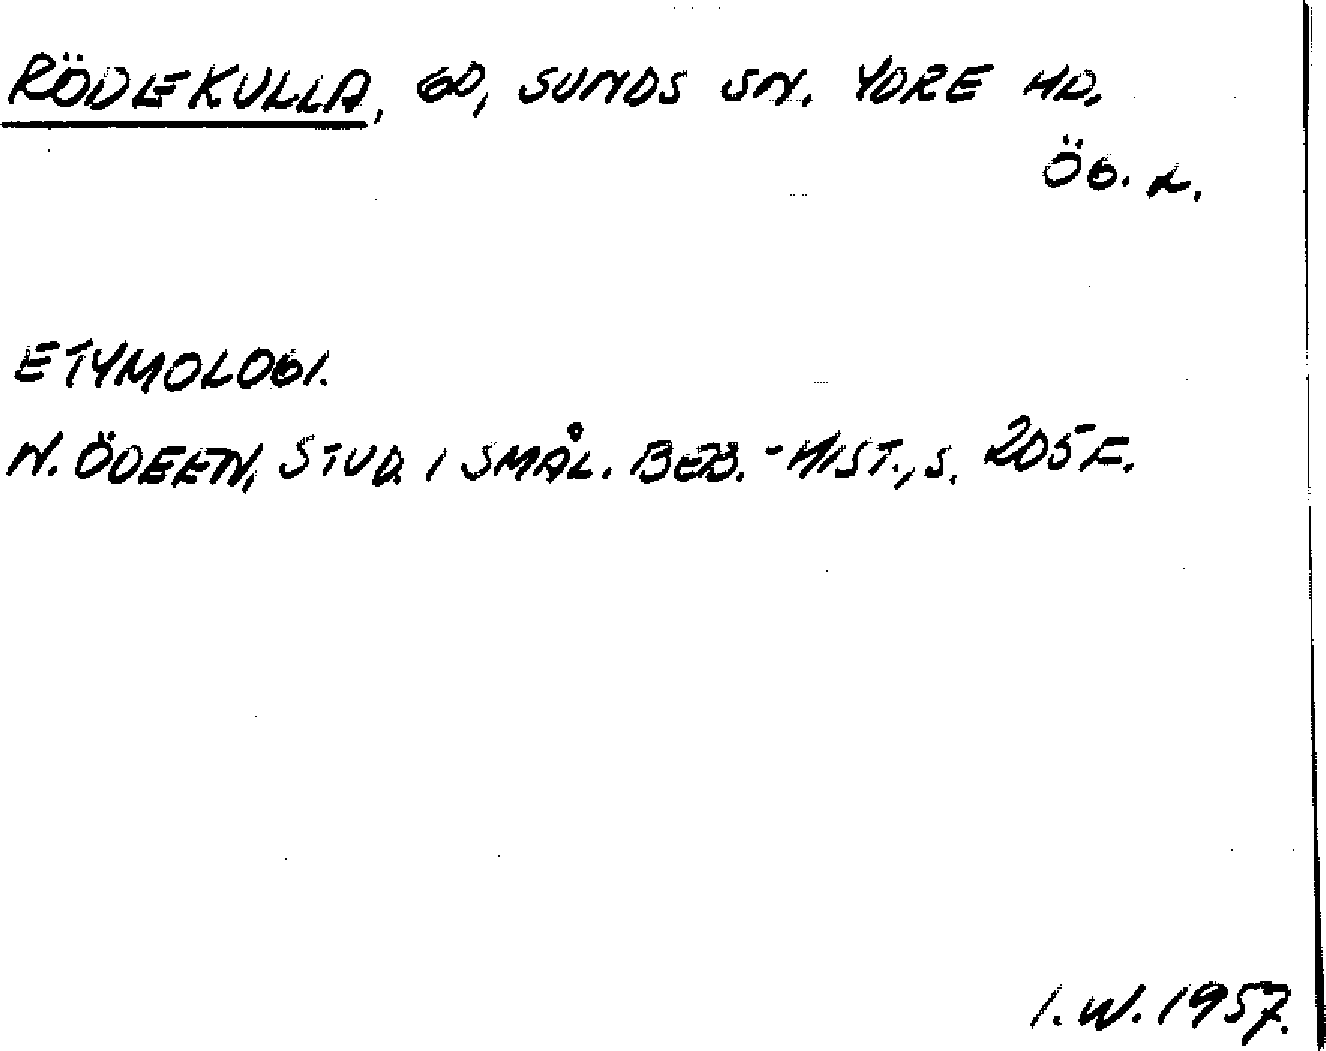 RÖDEKULLA, GD, SUNDS SN. YDRE HD,
ÖG. L.
ETYMOLOGI.
N. ÖDEEN, STUD. I SMÅL. BEB.-HIST., S. 205 F.
I. W. 1957.